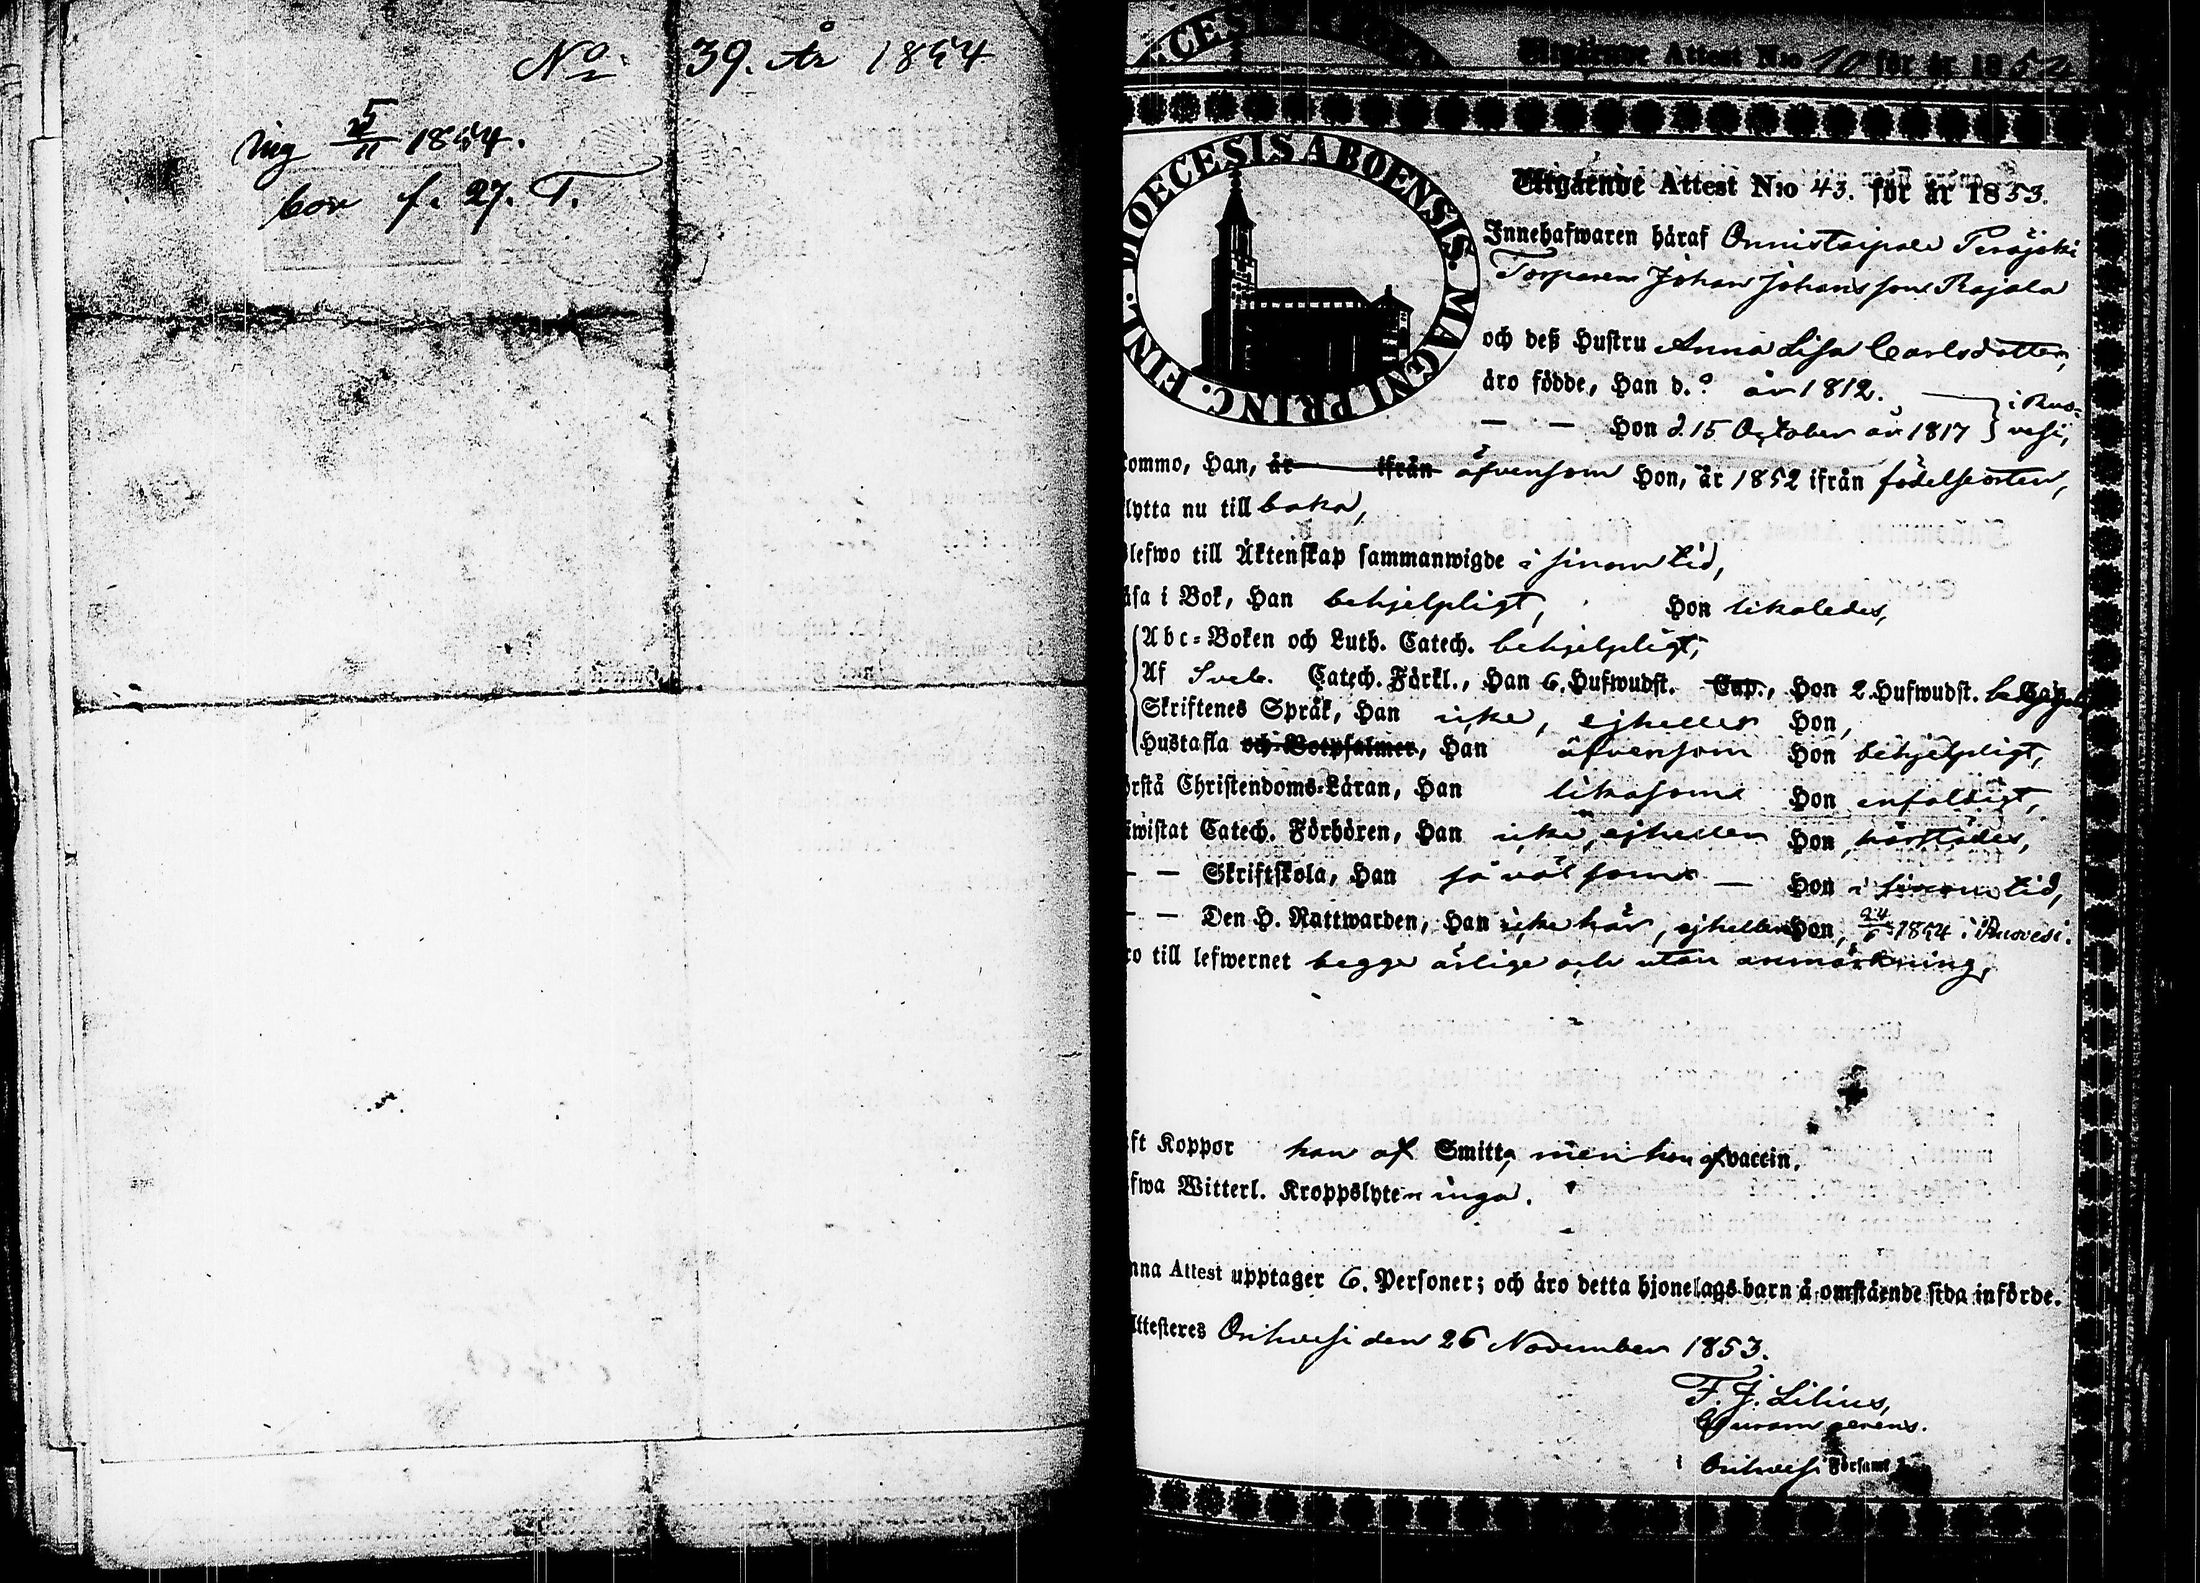 No 39. År 1854
ing 5/11 1854.
bor f. 27. T.
Utgående Attest N:o 10 för år 1852
DIOECESIS ABOENSIS. MAGNI PRINC. FINL.
Utgående Attest N:o 43. för år 1853.
Innehafwaren häraf Onnistaipale Peräjoki
Torparen Johan Johansson Rajala
och deß Hustru Anna Lisa Carlsdotter,
äro födde, Han d.o år 1812.
— — Hon d. 15 October år 1817 } i Ruo-
vesi,
ommo, Han, är ifrån äfvensom Hon, år 1852 ifrån födelseorten,
lytta nu till baka,
lefwo till Äktenskap sammanwigde i sinom tid,
äsa i Bok, Han behjelpligt, Hon likaledes,
Abc-Boken och Luth. Catech. behjelpligt,
Af Sveb. Catech. Förkl., Han 6. Hufwudst. Cap., Hon 2. Hufwudst.
Skriftenes Språk, Han icke, ejheller Hon,
Hustafla och Botpsalmer, Han äfvensom Hon behjelpligt,
örstå Christendoms-Läran, Han likasom Hon enfaldigt,
iwistat Catech. Förhören, Han icke, ejheller Hon, härstädes,
— — Skriftskola, Han så väl som — Hon i sinom tid,
— — Den H. Nattwarden, Han icke här, ejheller Hon, 24/6 1854 i Ruovesi.
ro till lefwernet begge ärlige och utan anmärkning,
ft Koppor han af Smitta, men hon af vaccin.
fwa Witterl. Kroppslyten inga.
nna Attest upptager 6. Personer; och äro detta hjonelags barn å omstående sida införde.
ttesteres Orihvesi den 26 November 1853.
F. J. Lilius,
Curam gerens.
i Orihvesi Församl.